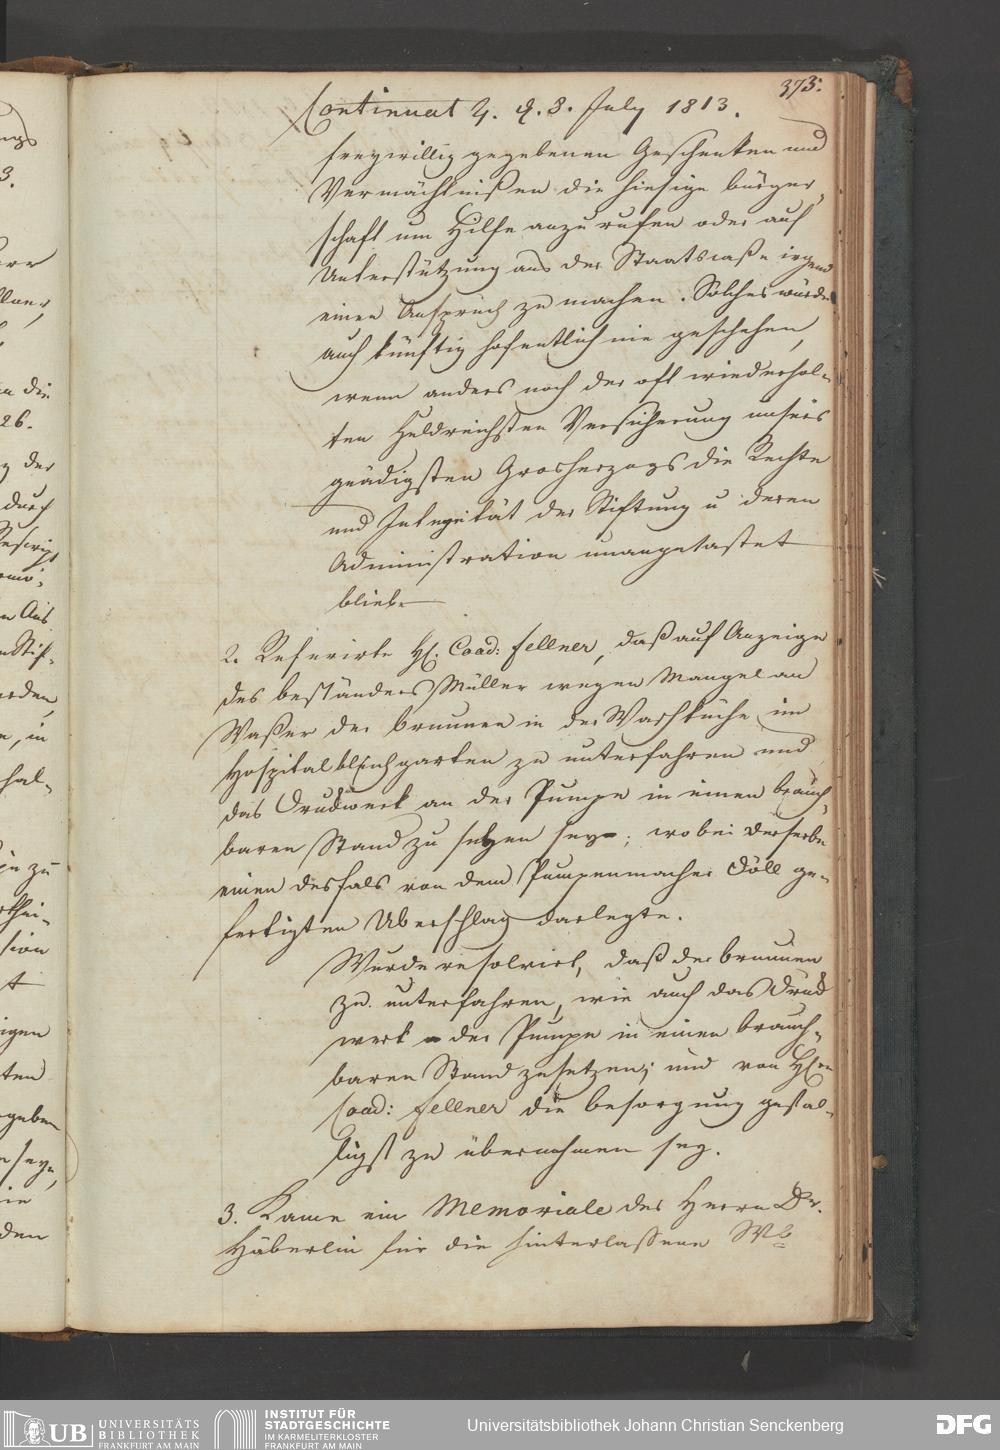 373.
Continuat 4. d. 8. July 1813.
freywillig gegebenen Geschenken und
Vermächtnißen die hiesige bürger,
schaft um Hilfe anzurufen oder auf
Unterstützung aus der Staatscaße irgend
einen Anspruch zu machen. Solches würde
auch künftig hofentlich nie geschehen,
wenn anders nach der oft wiederhol-
ten Huldreichsten Versicherung unsers
gnädigsten Grosherzogs die Rechte
und Integrität der Stiftung u deren
Administration unangetastet
bliebe
2. Referirte H. Coad: Fellner, daß auf Anzeige
des beständers Müller wegen Mangel an
Waßer der brunnen in der Waschküche im
Hospitalbleichgarten zu unterfahren und
das Druckwerk an der Pumpe in einen brauch,
baren Stand zu setzen seye; wobei derselbe
einen desfals von dem Pumpenmacher Döll ge-
fertigten Uberschlag darlegte.
Wurde resolvirt, daß der brunnen
zu unterfahren, wie auch das Druck
werk der Pumpe in einen brauch-
baren Stand zusetzen; und von Herrn
Coad: Fellner die besorgung gefäl-
ligst zu übernehmen sey.
3. Kame ein Memoriale des Herrn Dr.
Häberlin für die hinterlassene Wb
UB UNIVERSITÄTS
BIBLIOTHEK
FRANKFURT AM MAIN
INSTITUT FÜR
STADTGESCHICHTE
IM KARMELITERKLOSTER
FRANKFURT AM MAIN
Universitätsbibliothek Johann Christian Senckenberg
DFG